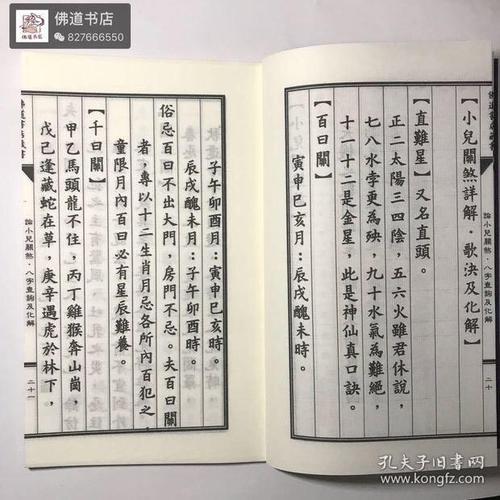 佛道书店
827666550
佛道书店
【小兒關煞詳解·歌決及化解】
【直難星】又名直頭。
正二太陽三四陰，五六火雖君休說，
七八水孛更為殃，九十水氣為難絕，
十一十二是金星，此是神仙真口訣。
【百日關】
寅申巳亥月：辰戌醜未時。
論小兒關煞·八字查詢及化解
二十
子午卯酉月：寅申巳亥時。
辰戌醜未月：子午卯酉時。
俗忌百日不出大門，房門不忌。夫百日關
者，專以十二生肖月忌各所內百犯之，
童限月內百日必有星辰難養。
【千日關】
甲乙馬頭龍不住，丙丁雞猴奔山崗，
戊己逢藏蛇在草，庚辛遇虎於林下，
論小兒關煞·八字查詢及化解
二十一
孔夫子旧书网
www.kongfz.com